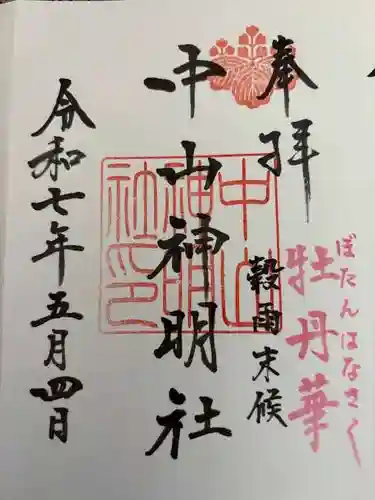 奉拝
穀雨末候
牡丹華
ぼたんはなさく
中山神明社
中山神明社印
令和七年五月四日